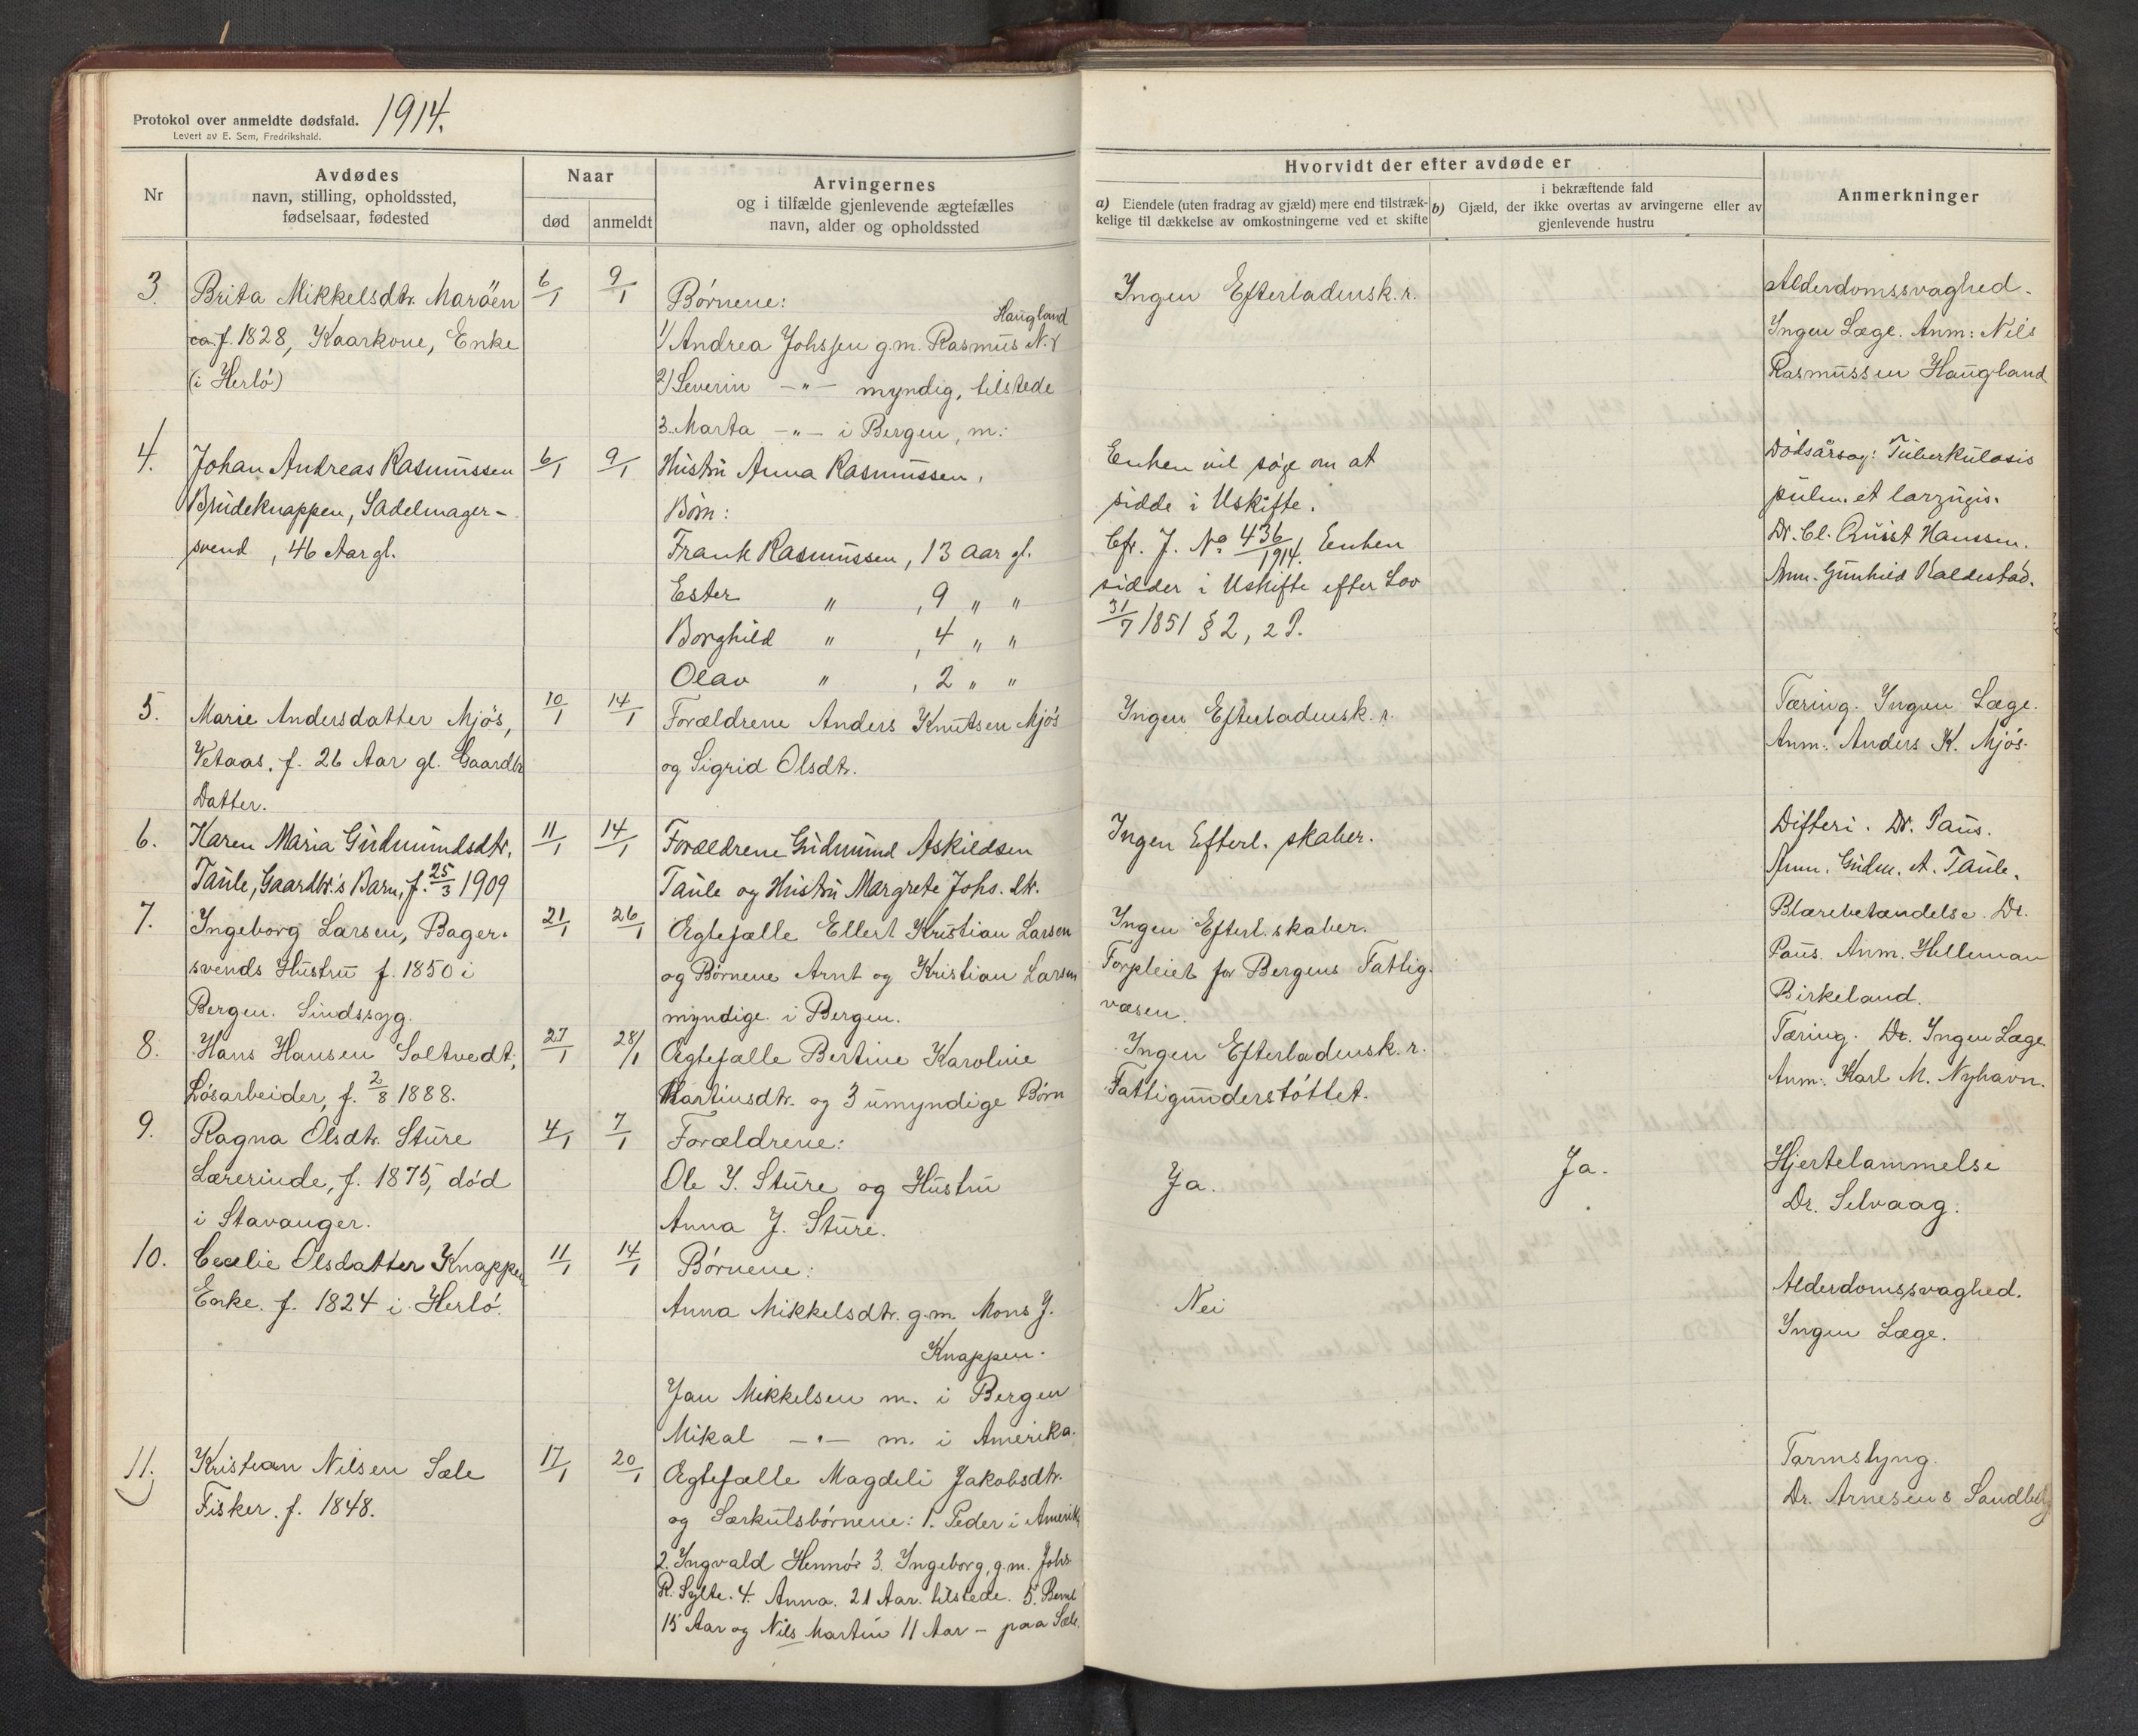 Protokol over anmeldte dødsfald. 1914.
Levert av E. Sem, Fredrikshald.
Nr
Avdødes
navn, stilling, opholdssted,
fødselsaar, fødested
Naar
død
anmeldt
Arvingernes
og i tilfælde gjenlevende ægtefælles
navn, alder og opholdssted
Hvorvidt der efter avdøde er
a) Eiendele (uten fradrag av gjæld) mere end tilstræk-
kelige til dækkelse av omkostningerne ved et skifte
i bekræftende fald
b) Gjæld, der ikke overtas av arvingerne eller av
gjenlevende hustru
Anmerkninger
3. Brita Mikkelsdtr. Marøen
ca. f. 1828, Kaarkone, Enke
(i Herlö)
6/1 9/1
Børnene:
Haugland
1/ Andrea Johssen g.m. Rasmus N.
2) Severin -"- myndig, tilstede
3. Marta -"- i Bergen, m:
Ingen Efterladensk.r.
Alderdomssvaghed.
Ingen Læge. Anm: Nils
Rasmussen Haugland
4. Johan Andreas Rasmussen
Brudeknappen, Sadelmager-
svend, 46 Aar gl.
6/1 9/1
Hustru Anna Rasmussen,
Børn:
Frank Rasmussen, 13 aar gl.
Ester " , 9 " "
Borghild " , 4 " "
Olav " , 2 " "
Enken vil søge om at
sidde i Uskifte.
Cfr. J. No 436/1914. Enken
sidder i Uskifte efter Lov
31/7 1851 § 2, 2 P.
Dødsårsag: Tuberkulosis
pulm. et laryngis.
Dr. Cl. Quist Hanssen.
Anm. Gunhild Kaldestad.
5. Marie Andersdatter Mjøs,
Vetaas. f. 26 Aar gl. Gaardbr
Datter.
10/1 14/1
Forældrene Anders Knutsen Mjøs
og Sigrid Olsdtr.
Ingen Efterladensk.r.
Tæring. Ingen Læge.
Anm: Anders K. Mjøs.
6. Karen Maria Gudmundsdtr.
Taule, Gaardbr.'s Barn, f. 25/3 1909
11/1 14/1
Forældrene Gudmund Askildsen
Taule og Hustru Margrete Johs. dtr.
Ingen Efterl. skaber.
Difteri. Dr. Paus.
Anm. Gudm. A. Taule.
7. Ingeborg Larsen, Bager-
svends Hustru f. 1850 i
Bergen. Sindssyg.
21/1 26/1
Ægtefælle Ellert Kristian Larsen
og Børnene Arnt og Kristian Larsen
myndige i Bergen.
Ingen Efterl. skaber.
Forpleiet for Bergens Fattig-
væsen.
Blærebetændelse. Dr.
Paus. Anm. Helleman
Birkeland.
8. Hans Hansen Soltvedt,
Løsarbeider, f. 2/8 1888.
27/1 28/1
Ægtefælle Bertine Karoline
Martinsdtr. og 3 umyndige Børn
Ingen Efterladensk.r.
Fattigunderstøttet.
Tæring. Dr. Ingen Læge
Anm: Karl M. Nyhavn.
9. Ragna Olsdtr. Sture
Lærerinde, f. 1875, død
i Stavanger.
4/1 7/1
Forældrene:
Ole J. Sture og Hustru
Anna J. Sture.
Ja.
Ja.
Hjertelammelse
Dr. Selvaag.
10. Cecelie Olsdatter Knappen
Enke. f. 1824 i Herlö.
11/1 14/1
Børnene:
Anna Mikkelsdtr. g.m. Mons J.
Knappen.
Jan Mikkelsen m. i Bergen
Mikal -"- m. i Amerika.
Nei
Alderdomssvaghed.
Ingen Læge.
11. Kristian Nilsen Sæle
Fisker. f. 1848.
17/1 20/1
Ægtefælle Magdeli Jakobsdtr.
og Særkulsbørnene: 1. Peder i Amerika
2. Ingvald Hennør 3. Ingeborg, g.m. Johs
R. Sylte. 4. Anna. 21 Aar. tilstede. 5. Bernt
15 Aar og Nils Martin 11 Aar - paa Sæle.
Tarmslyng.
Dr. Arnesens Sandberg